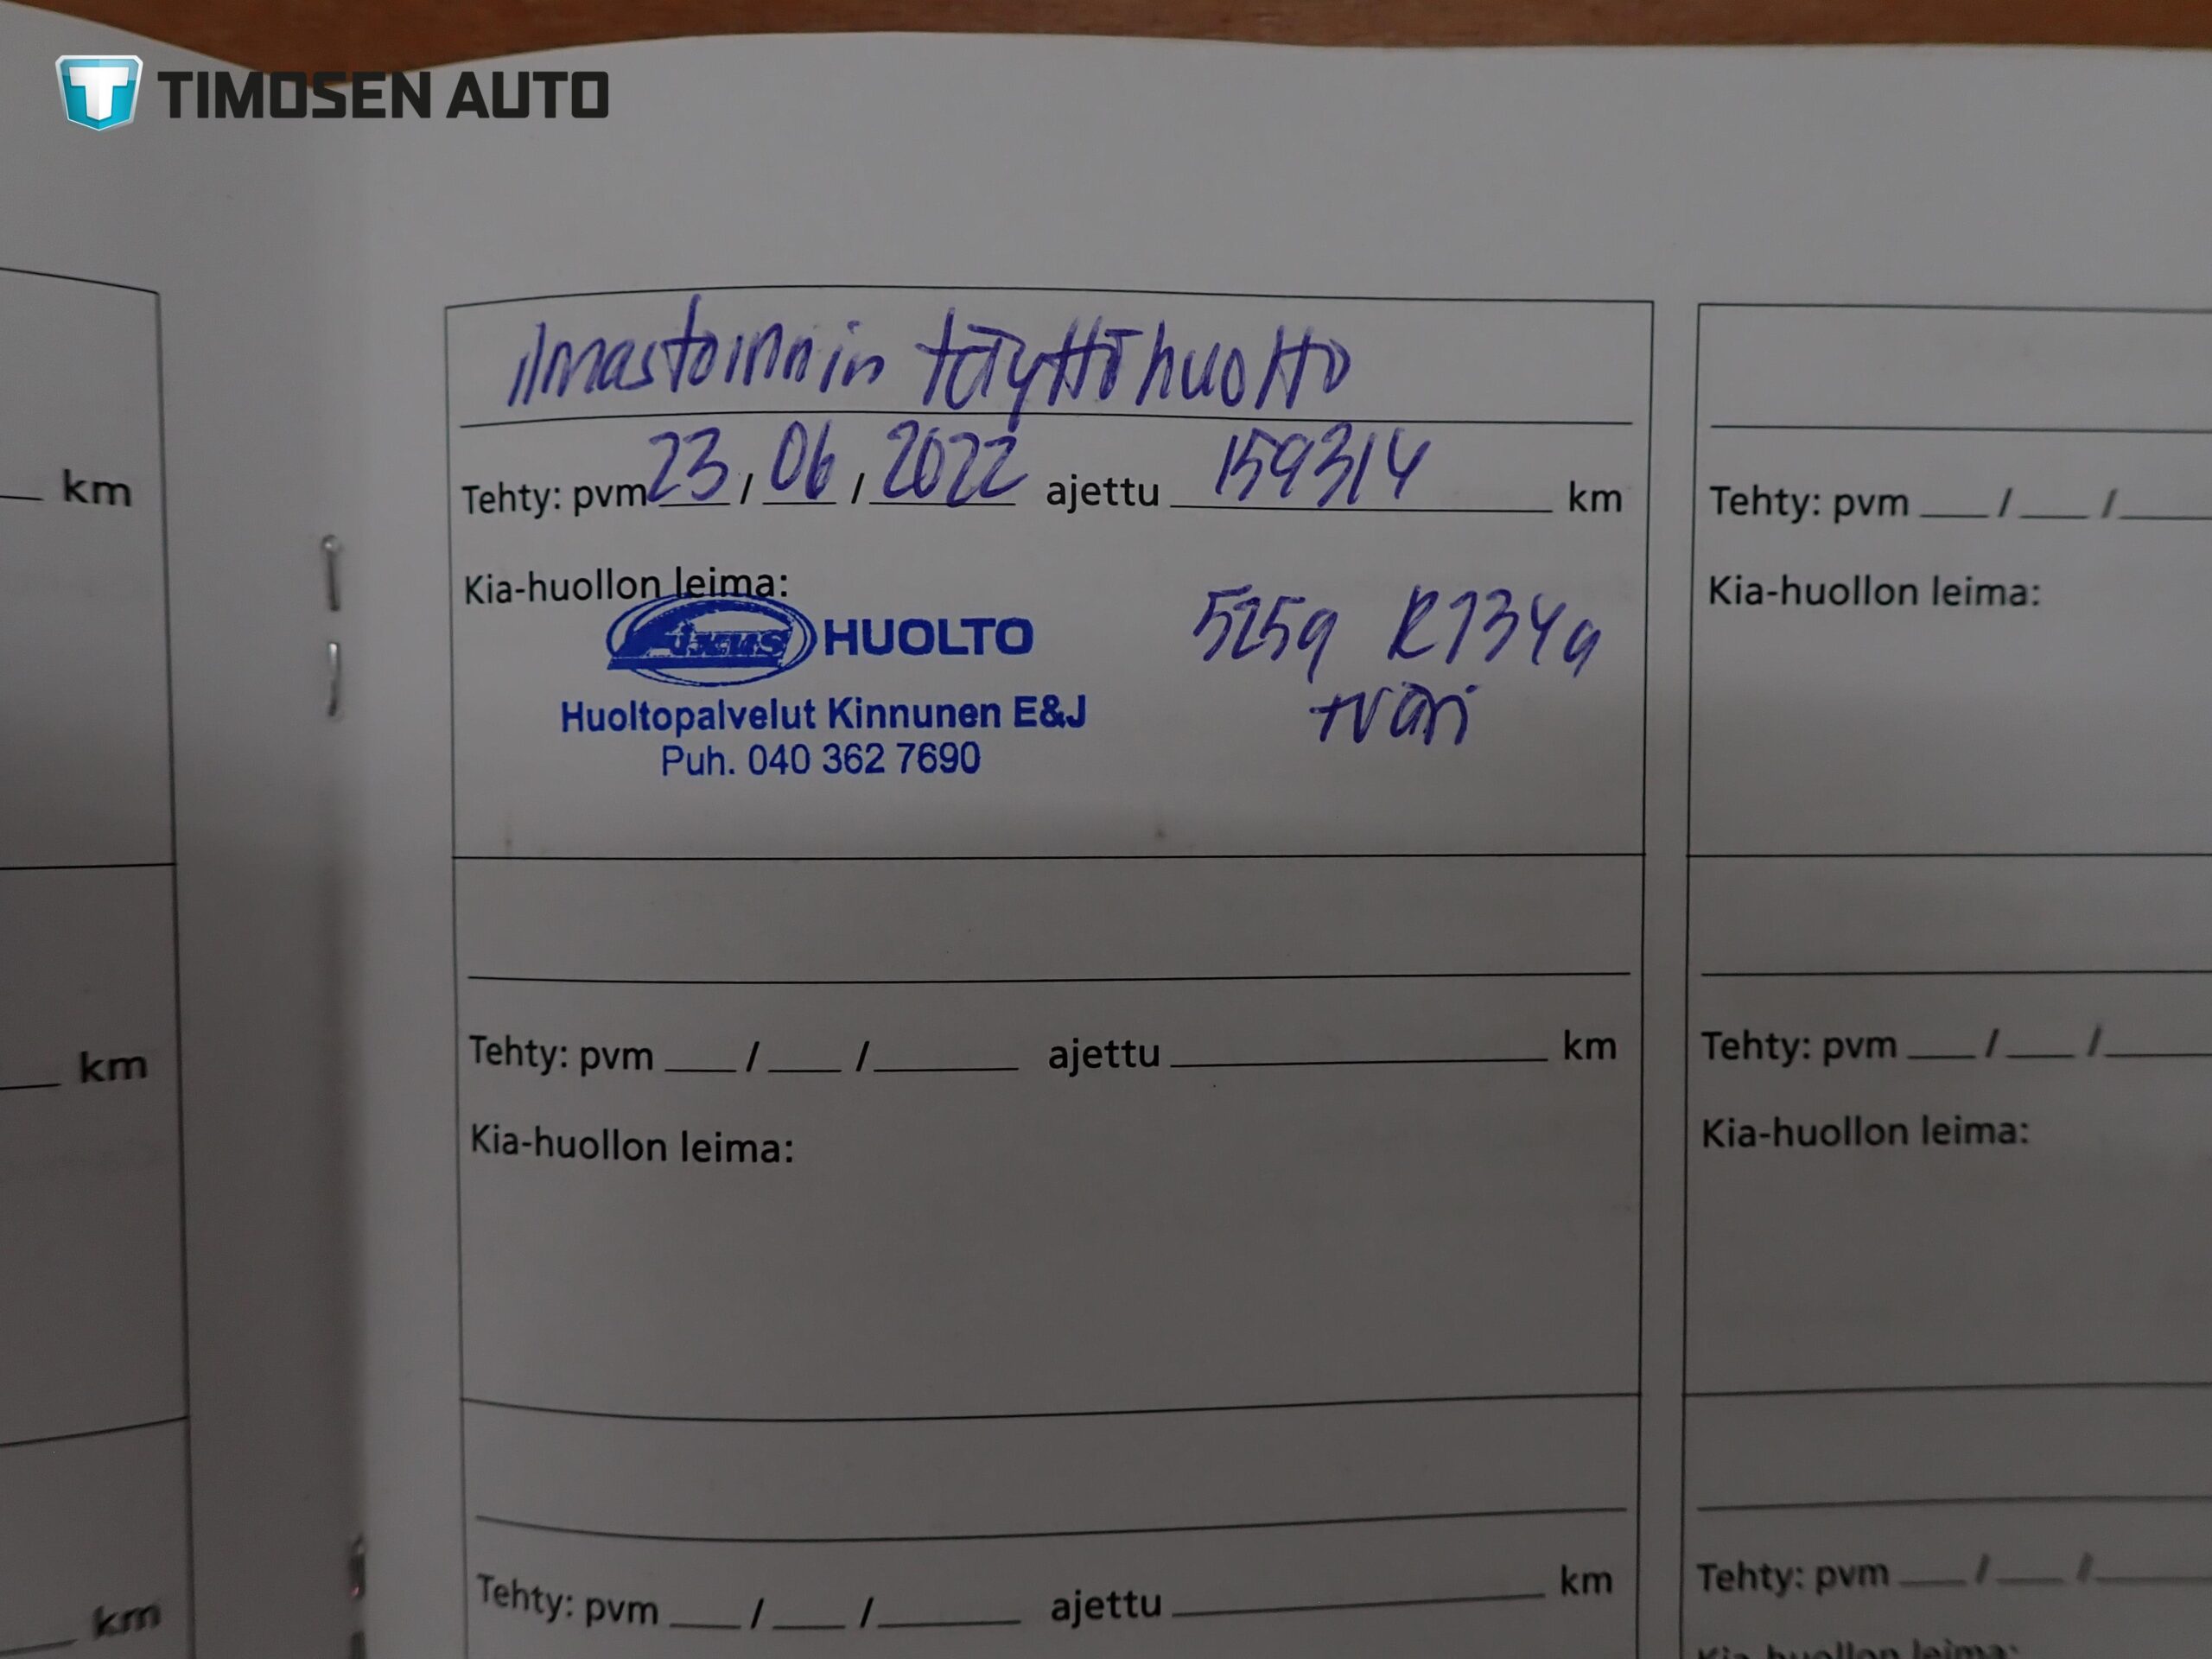 TIMOSEN AUTO
km
km
km
Ilmastoinnin täyttöhuolto
Tehty: pvm 23 / 06 / 2022 ajettu 159314 km
Kia-huollon leima:
Fixus HUOLTO
Huoltopalvelut Kinnunen E&J
Puh. 040 362 7690
525g R134a
+väri
Tehty: pvm ___ / ___ / ___ ajettu ___ km
Kia-huollon leima:
Tehty: pvm ___ / ___ / ___ ajettu ___ km
Tehty: pvm ___ / ___ / ___
Kia-huollon leima:
Tehty: pvm ___ / ___ / ___
Kia-huollon leima:
Tehty: pvm ___ / ___ / ___
Kia-huollon leima: